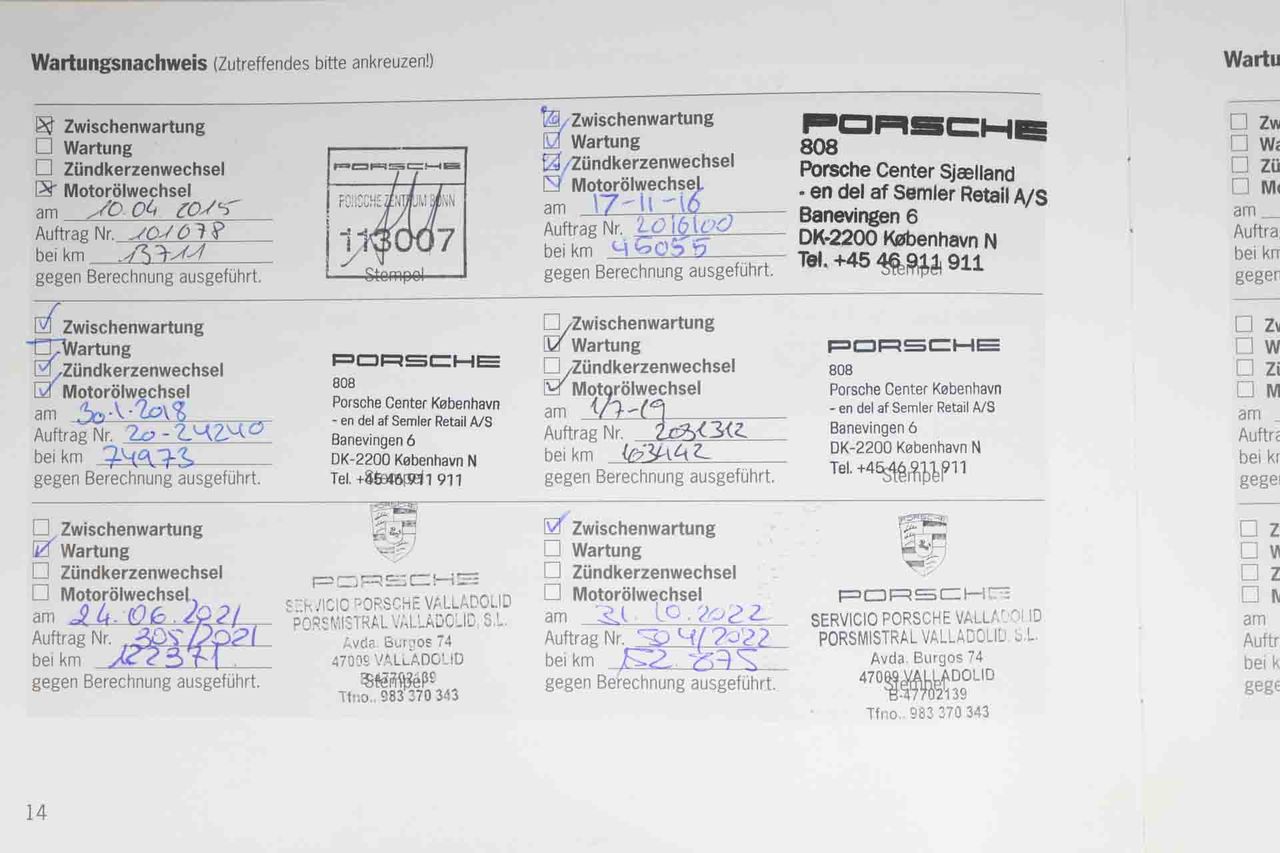 Wartungsnachweis (Zutreffendes bitte ankreuzen!)
Zwischenwartung
Wartung
Zündkerzenwechsel
Motorölwechsel
am 10.04 2015
Auftrag Nr. 101078
bei km 13711
gegen Berechnung ausgeführt.
PORSCHE
PORSCHE ZENTRUM BONN
113007
Stempel
Zwischenwartung
Wartung
Zündkerzenwechsel
Motorölwechsel
am 17-11-16
Auftrag Nr. 2016100
bei km 46055
gegen Berechnung ausgeführt.
PORSCHE
808
Porsche Center Sjælland
- en del af Semler Retail A/S
Banevingen 6
DK-2200 København N
Tel. +45 46 911 911
Stempel
Zwischenwartung
Wartung
Zündkerzenwechsel
Motorölwechsel
am 30.1.2018
Auftrag Nr. 20-24240
bei km 74973
gegen Berechnung ausgeführt.
PORSCHE
808
Porsche Center København
- en del af Semler Retail A/S
Banevingen 6
DK-2200 København N
Tel. +45 46 911 911
Stempel
Zwischenwartung
Wartung
Zündkerzenwechsel
Motorölwechsel
am 1/7-19
Auftrag Nr. 2031312
bei km
gegen Berechnung ausgeführt.
PORSCHE
808
Porsche Center København
- en del af Semler Retail A/S
Banevingen 6
DK-2200 København N
Tel. +45 46 911 911
Stempel
Zwischenwartung
Wartung
Zündkerzenwechsel
Motorölwechsel
am 24.06.2021
Auftrag Nr. 305/2021
bei km 122371
gegen Berechnung ausgeführt.
PORSCHE
SERVICIO PORSCHE VALLADOLID
PORSMISTRAL VALLADOLID, S.L.
Avda. Burgos 74
47009 VALLADOLID
B-47702139
Stempel
Tfno.. 983 370 343
Zwischenwartung
Wartung
Zündkerzenwechsel
Motorölwechsel
am 31.10.2022
Auftrag Nr. 504/2022
bei km 152.875
gegen Berechnung ausgeführt.
PORSCHE
SERVICIO PORSCHE VALLADOLID
PORSMISTRAL VALLADOLID. S.L.
Avda. Burgos 74
47009 VALLADOLID
Stempel
B-47702139
Tfno.. 983 370 343
14
Wartu
Zw
Wa
Zü
Mo
am
Auftra
bei km
gegen
Zw
W
Zü
M
am
Auftra
bei k
gege
Z
W
Z
M
am
Auftr
bei k
gege